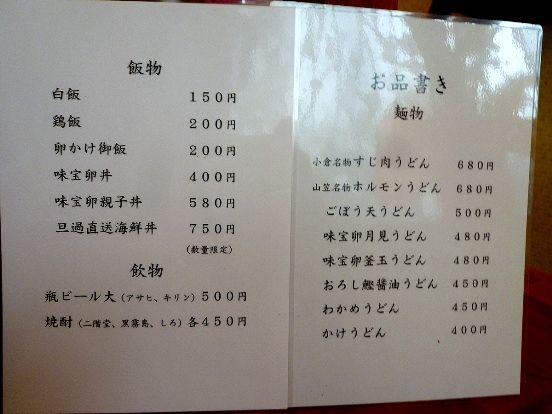 お品書き
麺物
小倉名物すじ肉うどん 680円
山笠名物ホルモンうどん 680円
ごぼう天うどん 500円
味宝卵月見うどん 480円
味宝卵釜玉うどん 480円
おろし鰹醤油うどん 450円
わかめうどん 450円
かけうどん 400円
飯物
白飯 150円
鶏飯 200円
卵かけ御飯 200円
味宝卵丼 400円
味宝卵親子丼 580円
旦過直送海鮮丼 750円
(数量限定)
飲物
瓶ビール大(アサヒ、キリン)500円
焼酎(二階堂、黒霧島、しろ)各450円